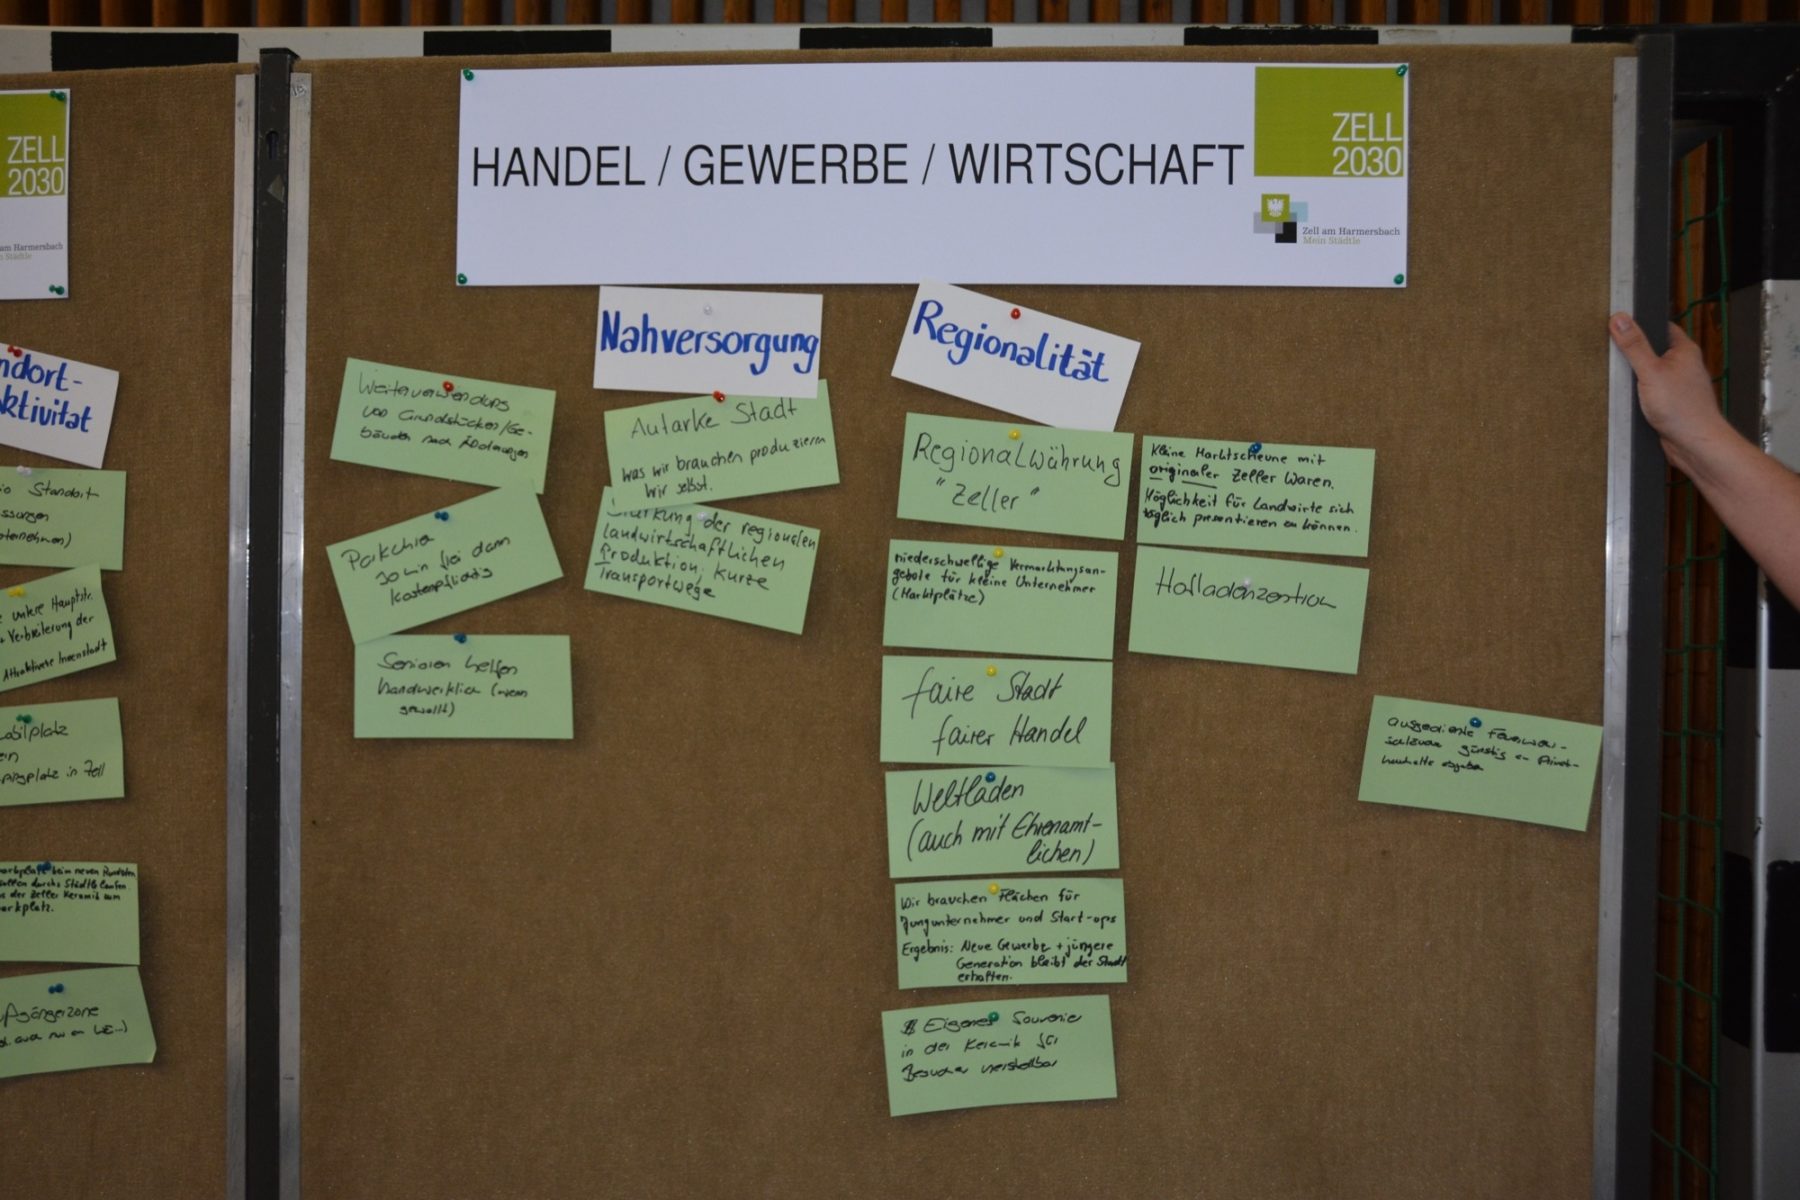 ZELL
2030
am Harmersbach
Städtle
ndort-
ktivität
io Standort
ssungen
ternehmen)
untere Hauptstr.
+ Verbreiterung der
Attraktivere Innenstadt
obilplatz
ein
pingplatz in Zell
beim neuen Rundofen
durchs Städtle laufen.
der Zeller Keramik zum
arkplatz.
ußgängerzone
HANDEL / GEWERBE / WIRTSCHAFT
ZELL
2030
Zell am Harmersbach
Mein Städtle
Weiterverwendung
von Grundstücken/Ge-
bäuden nach
Parkuhr
30 min frei dann
kostenpflichtig
Senioren helfen
handwerklich (wenn
gewollt)
Nahversorgung
Autarke Stadt
was wir brauchen produzieren
wir selbst.
Stärkung der regionalen
landwirtschaftlichen
Produktion, kurze
Transportwege
Regionalität
Regionalwährung
"Zeller"
niederschwellige Vermarktungsan-
gebote für kleine Unternehmer
(Marktplätze)
faire Stadt
fairer Handel
Weltladen
(auch mit Ehrenamt-
lichen)
Wir brauchen Flächen für
Jungunternehmer und Start-ups
Ergebnis: Neue Gewerbe + jüngere
Generation bleibt der Stadt
erhalten.
Eigenes Souvenir
in der Keramik für
Besucher herstellbar
Kleine Marktscheune mit
originaler Zeller Waren.
Möglichkeit für Landwirte sich
täglich präsentieren zu können.
Hofladenzentrum
ausgediente Feuerwehr-
schläuche günstig an Privat-
haushalte abgeben